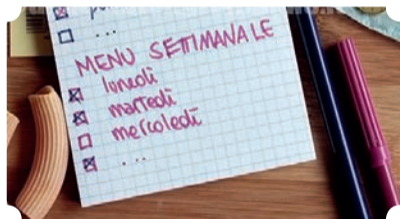 ...
MENU SETTIMANALE
lunedì
martedì
mercoledì
...